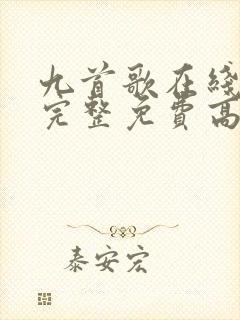 九首歌在线
完整免費高
泰安宏